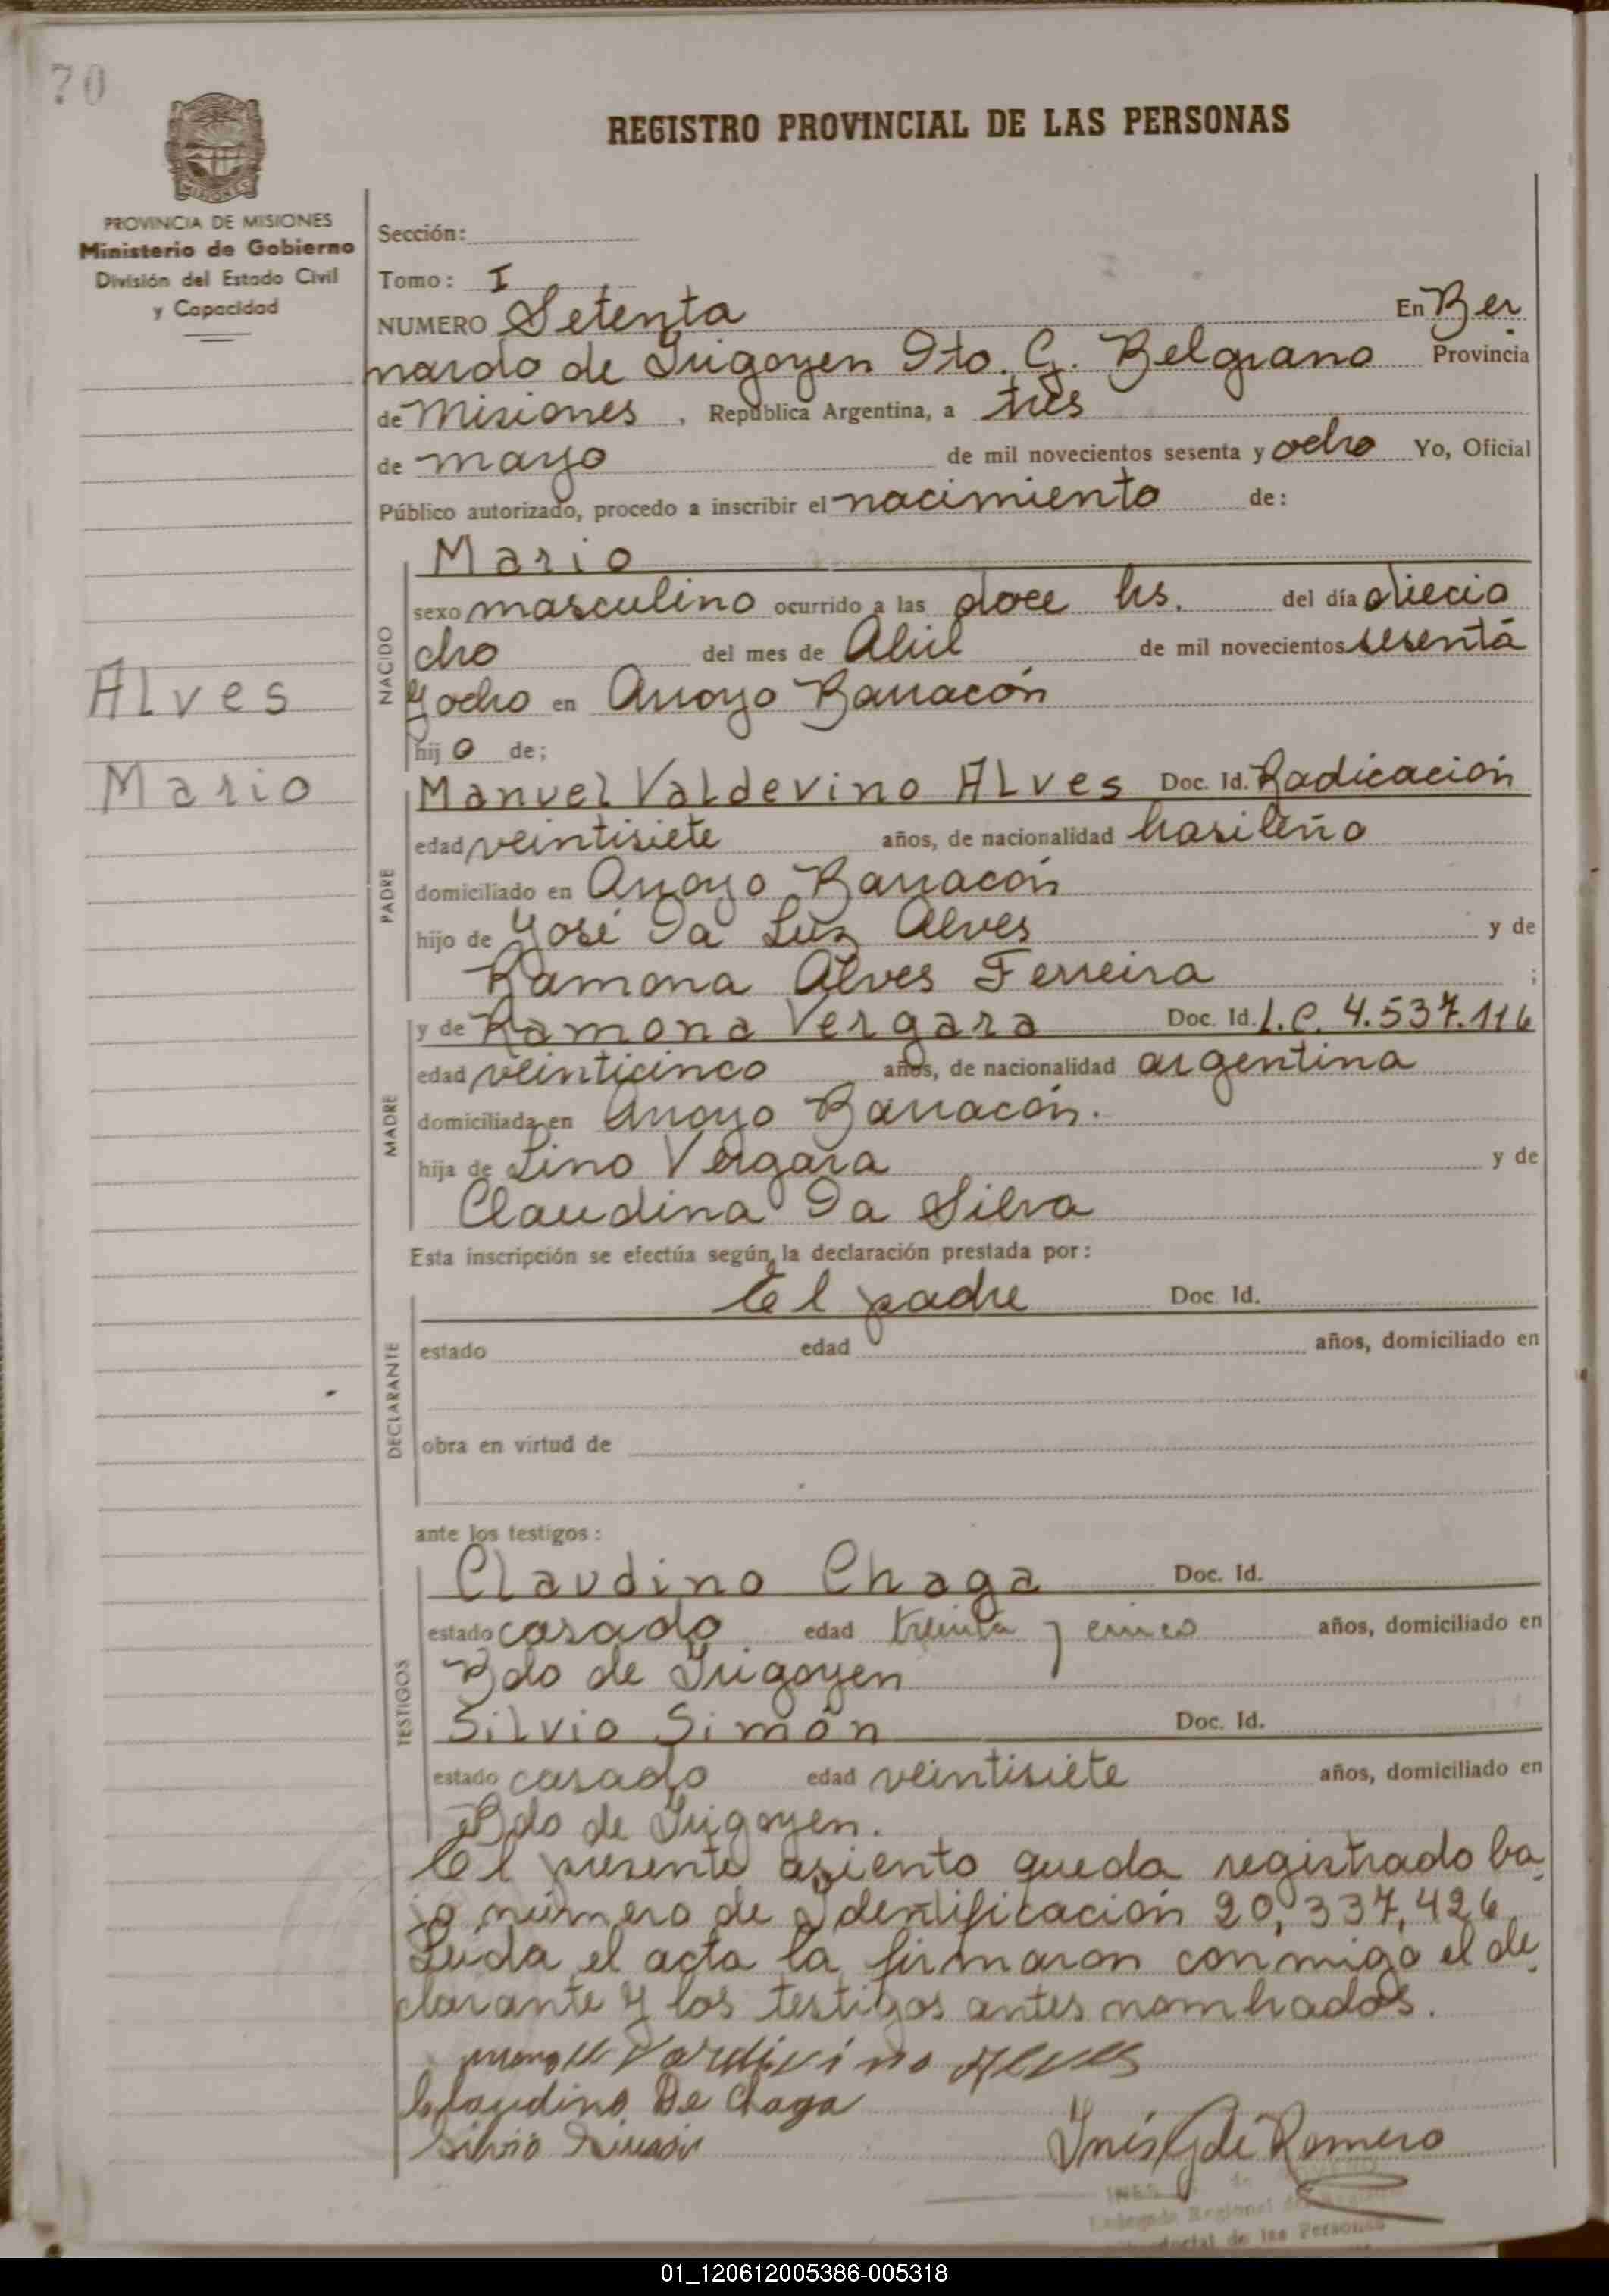 70
REGISTRO PROVINCIAL DE LAS PERSONAS
MISIONES
PROVINCIA DE MISIONES
Ministerio de Gobierno
División del Estado Civil
y Capacidad
Sección:
Tomo: I
NUMERO Setenta En Ber
nardo de Irigoyen Dto. G. Belgrano Provincia
de Misiones, República Argentina, a tres
de mayo de mil novecientos sesenta y ocho Yo, Oficial
Público autorizado, procedo a inscribir el nacimiento de:
NACIDO
Mario
sexo masculino ocurrido a las doce hs. del día diecio
cho del mes de Abril de mil novecientos sesenta
y ocho en Arroyo Barracón
hijo de;
Alves
Mario
PADRE
Manuel Valdevino Alves Doc. Id. Radicación
edad veintisiete años, de nacionalidad brasileño
domiciliado en Arroyo Barracón
hijo de José Da Luz Alves y de
Ramona Alves Ferreira ;
MADRE
y de Ramona Vergara Doc. Id. L.C. 4.537.116
edad veinticinco años, de nacionalidad argentina
domiciliada en Arroyo Barracón.
hija de Lino Vergara y de
Claudina Da Silva
Esta inscripción se efectúa según la declaración prestada por:
DECLARANTE
El padre Doc. Id.
estado edad años, domiciliado en
obra en virtud de
ante los testigos:
TESTIGOS
Claudino Chaga Doc. Id.
estado casado edad treinta y cinco años, domiciliado en
Bdo de Irigoyen
Silvio Simón Doc. Id.
estado casado edad veintisiete años, domiciliado en
Bdo de Irigoyen.
El presente asiento queda registrado ba
jo número de Identificación 20,337,426
Leída el acta la firmaron conmigo el de
clarante y los testigos antes nombrados.
Manoel Vardivino Alves
Claudino De Chaga
Silvio Simón
Inés G de Romero
INES de
Delegada Regional del
de las Personas
01_120612005386-005318